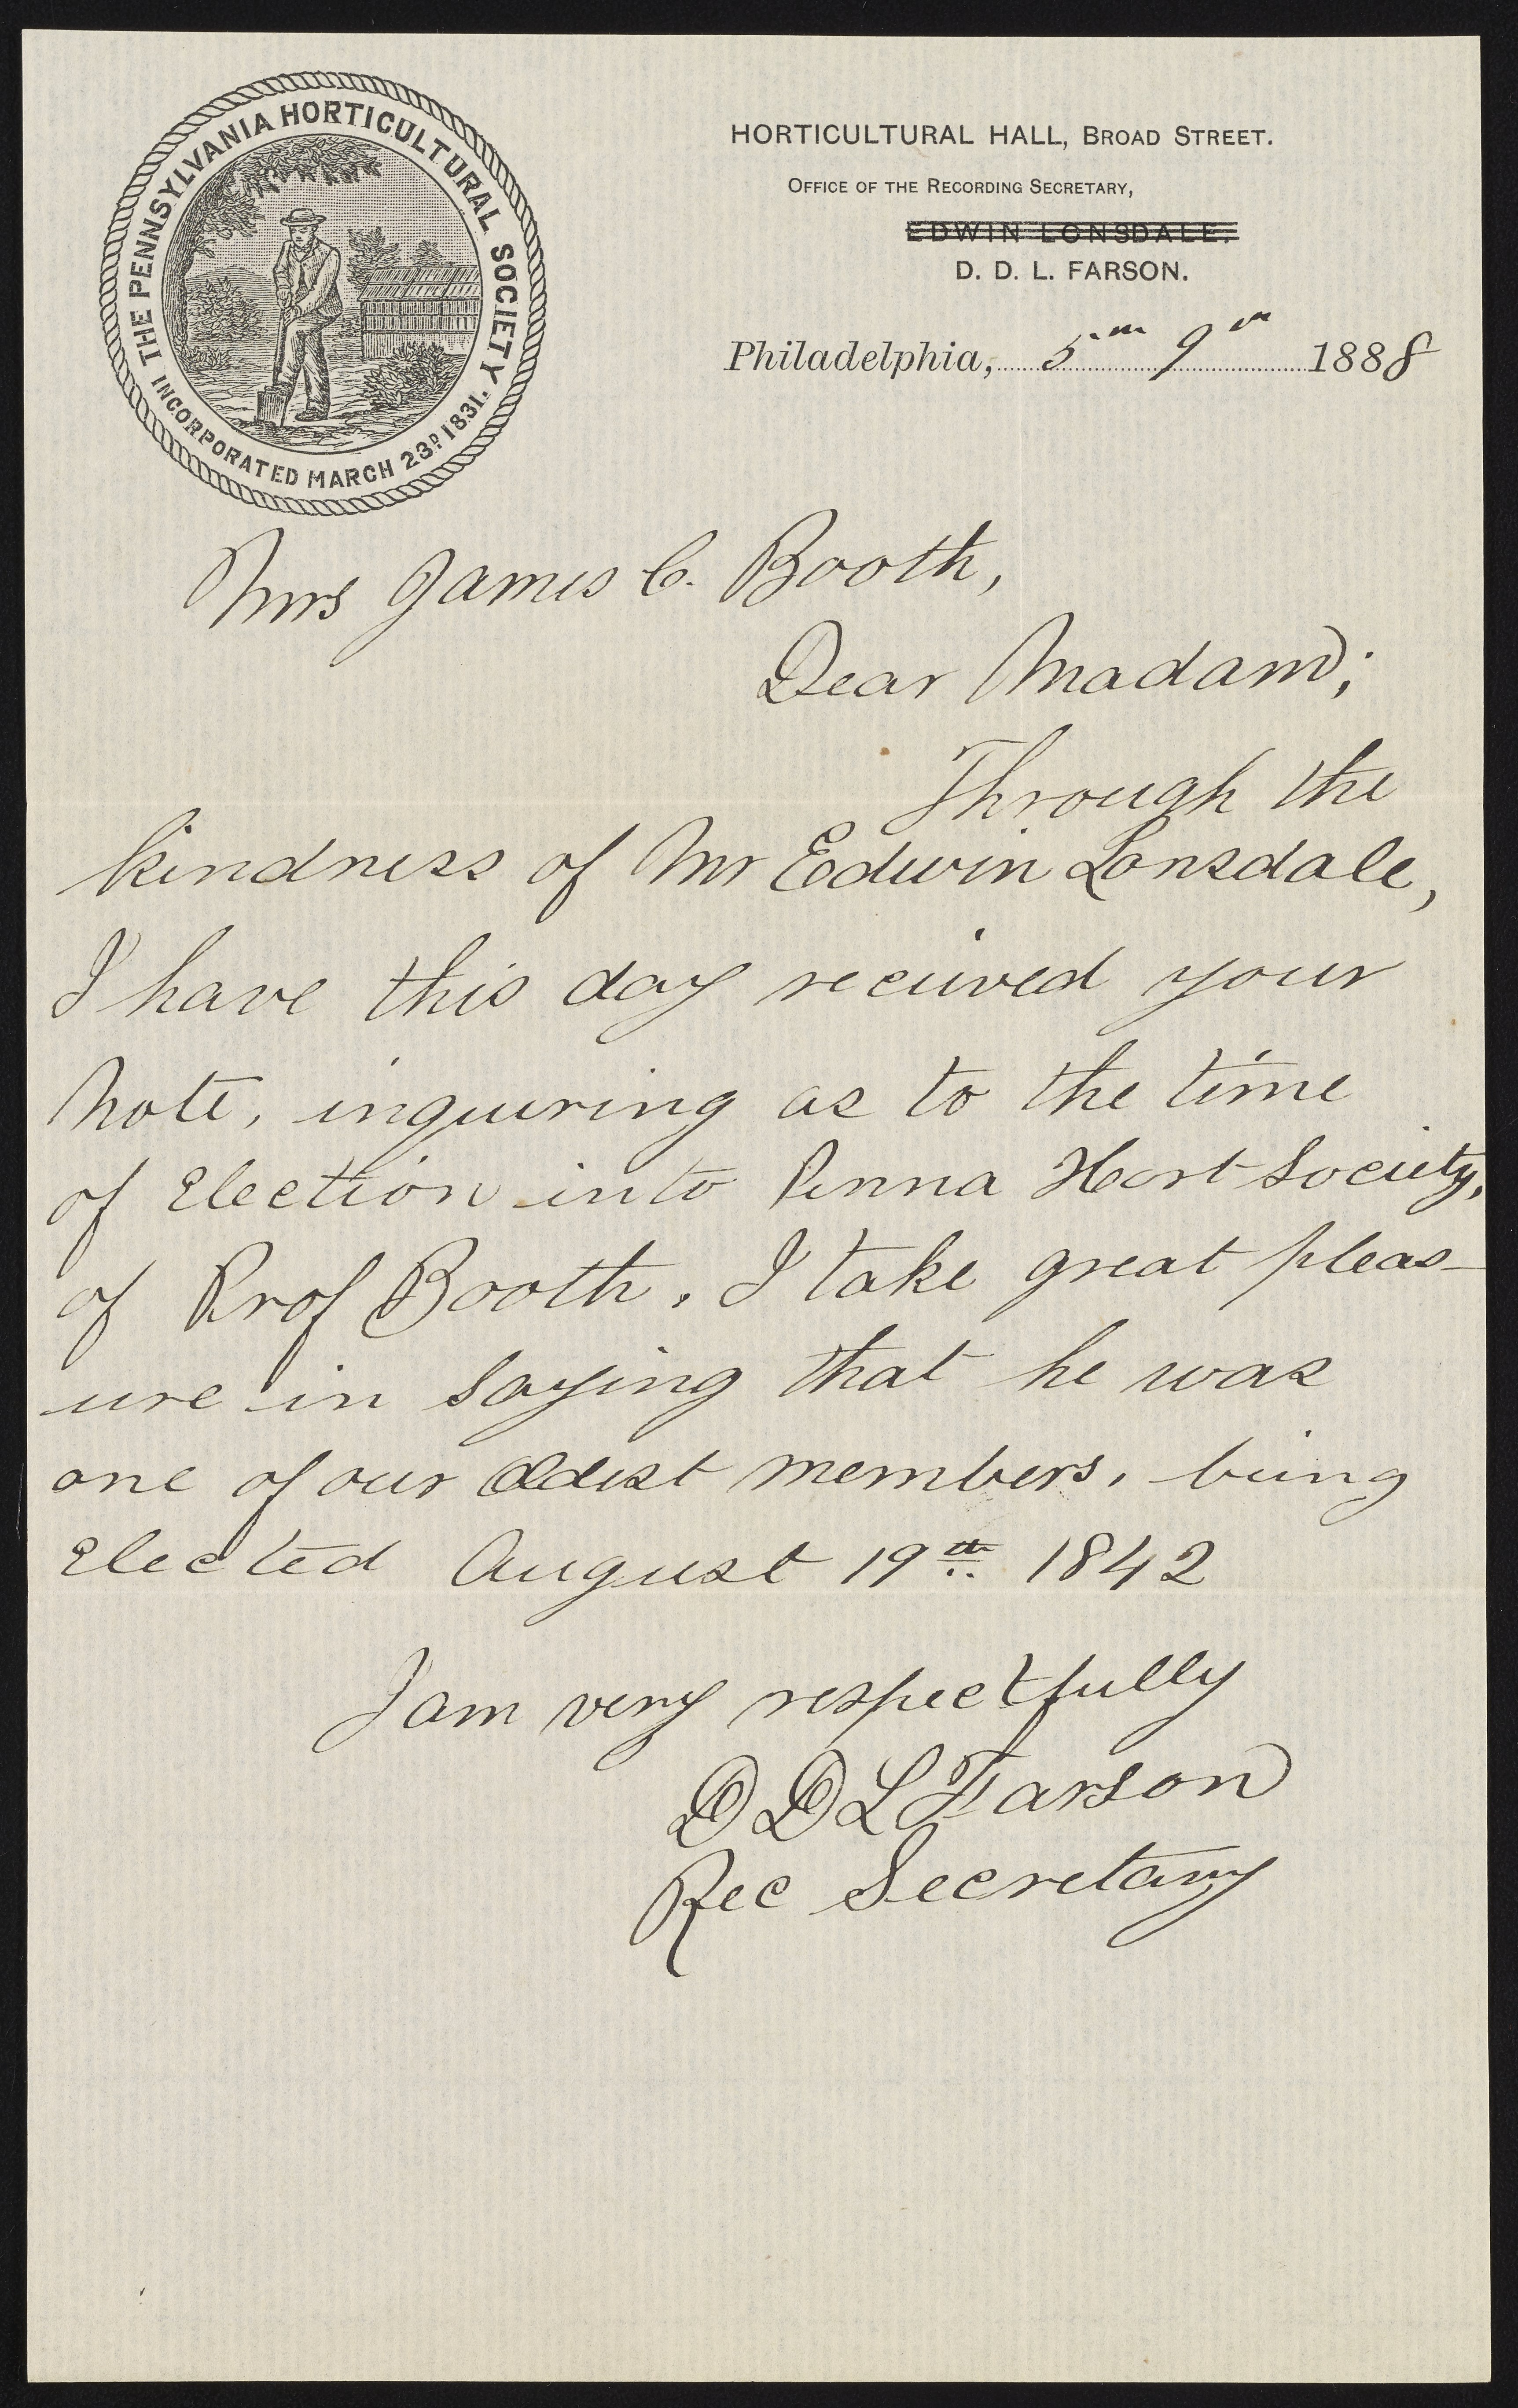 THE PENNSYLVANIA HORTICULTURAL SOCIETY
INCORPORATED MARCH 23D 1831.
HORTICULTURAL HALL, BROAD STREET.
OFFICE OF THE RECORDING SECRETARY,
EDWIN LONSDALE.
D. D. L. FARSON.
Philadelphia, 5th 9th 1888
Mrs James C. Booth,
Dear Madam;
Through the
kindness of Mr Edwin Lonsdale,
I have this day received your
Note, inquiring as to the time
of Election into Penna Hort Society,
of Prof Booth. I take great pleas-
ure in saying that he was
one of our Oldest members, being
Elected August 19th 1842
I am very respectfully
D D L Farson
Rec Secretary